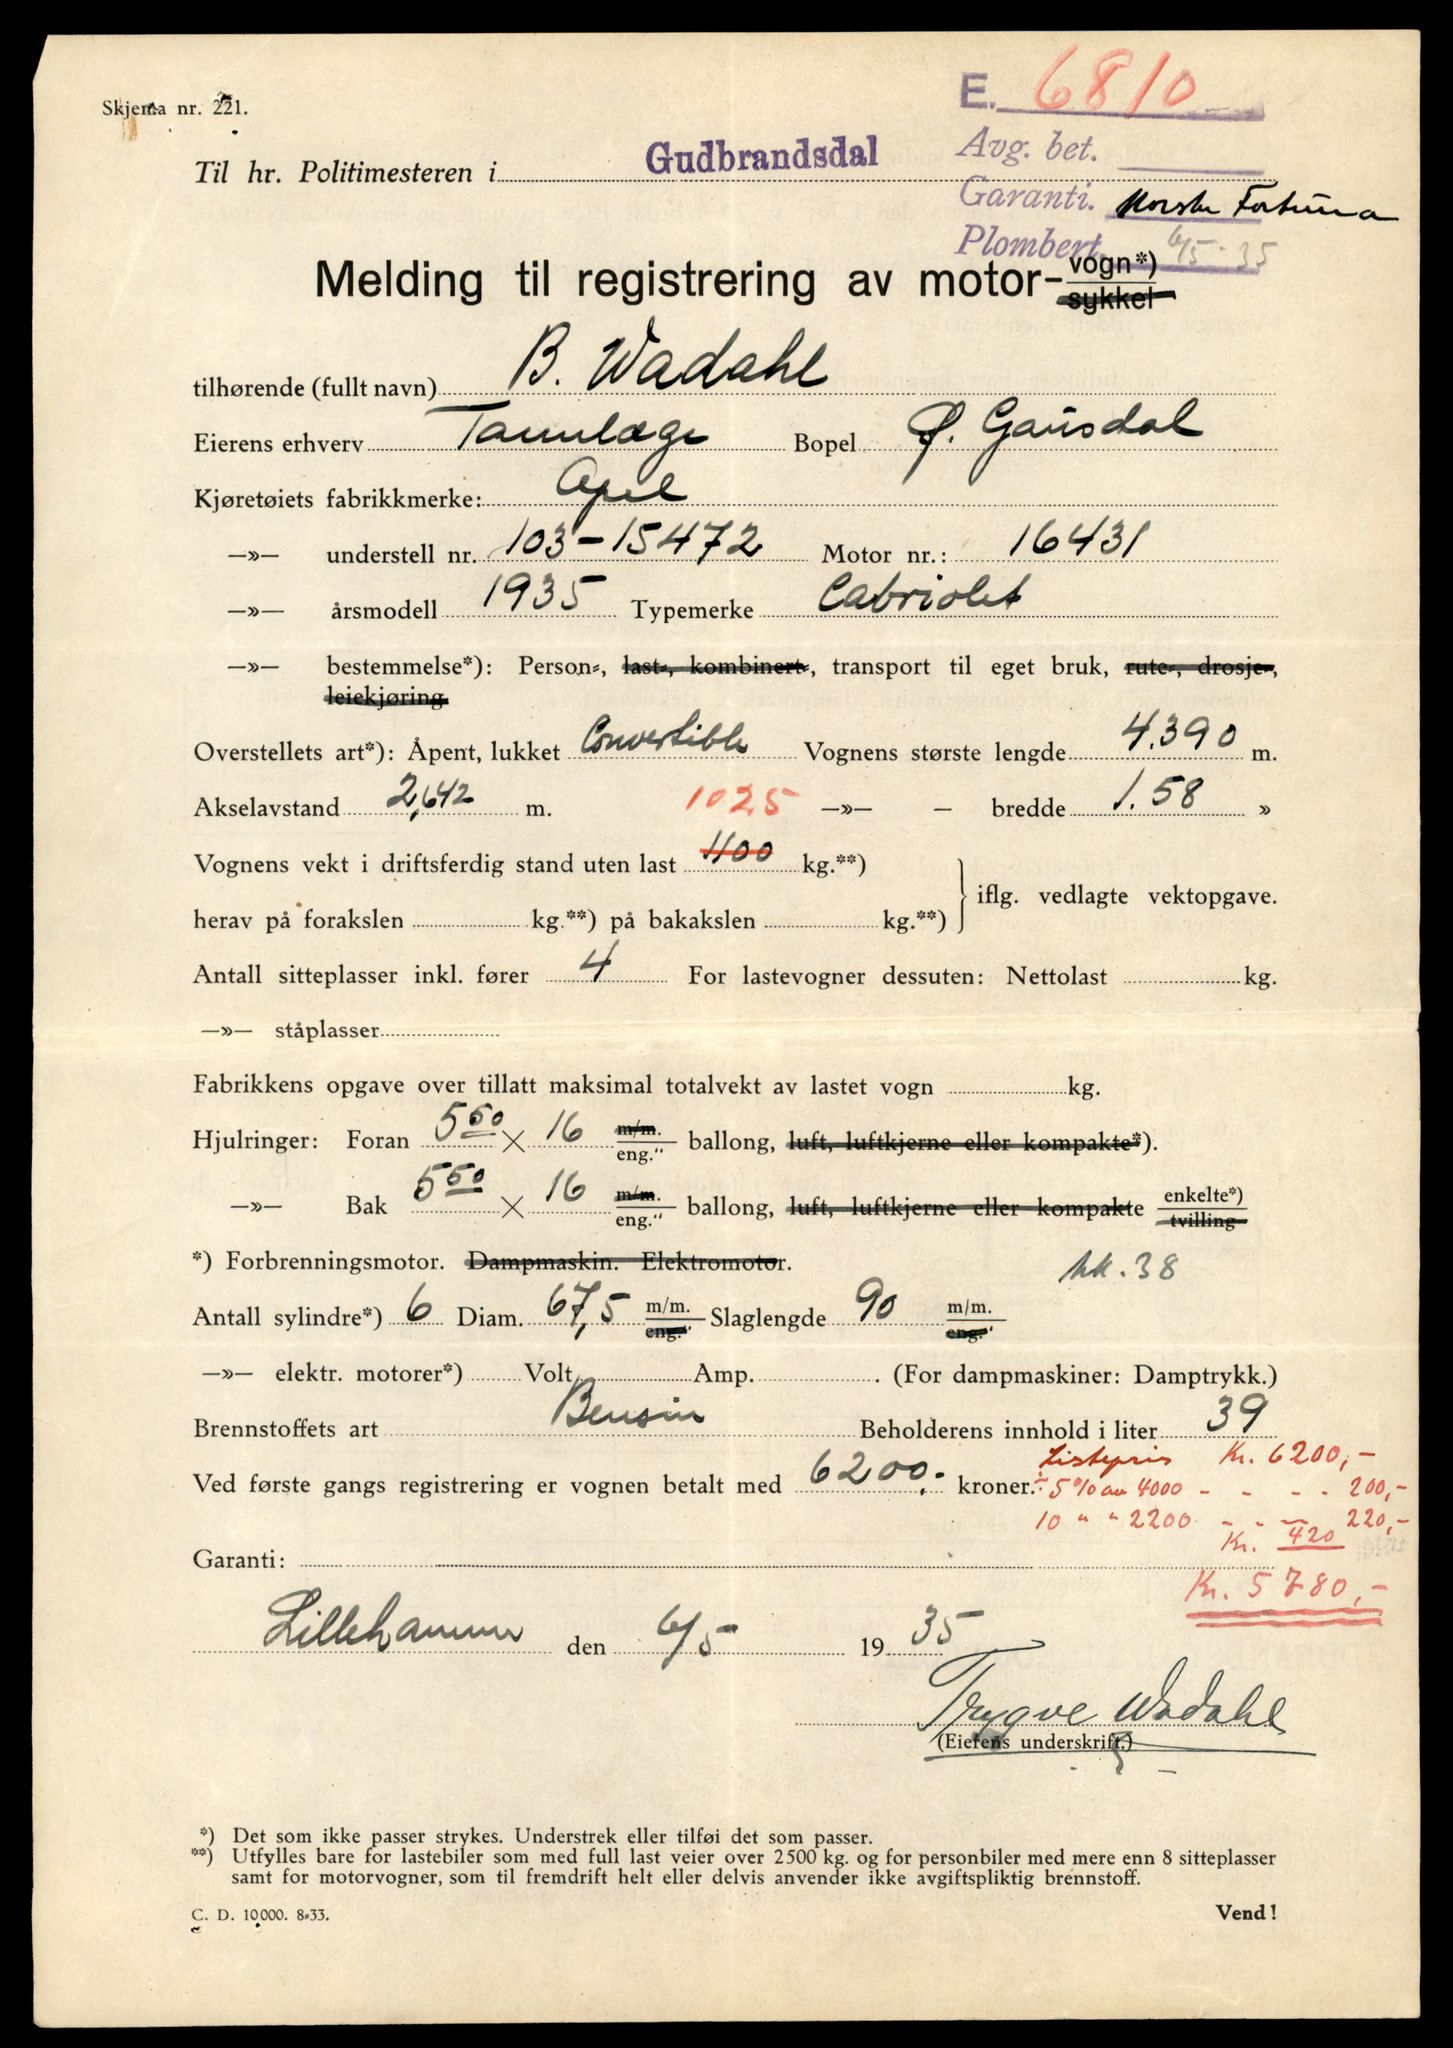 Skjema nr. 221.
E. 6810
Avg. bet.
Til hr. Politimesteren i Gudbrandsdal
Garanti. Norske Fortuna
Plombert. 6/5-35
Melding til registrering av motor-vogn*)
sykkel
tilhørende (fullt navn) B. Wadahl
Eierens erhverv Tannlæge Bopel Ø. Gausdal
Kjøretøiets fabrikkmerke: Opel
—»— understell nr. 103-15472 Motor nr.: 16431
—»— årsmodell 1935 Typemerke Cabriolet
—»— bestemmelse*): Person-, last-, kombinert-, transport til eget bruk, rute-, drosje-,
leiekjøring
Overstellets art*): Åpent, lukket Convertible Vognens største lengde 4.390 m.
Akselavstand 2,642 m. 1025 —»— — bredde 1.58 »
Vognens vekt i driftsferdig stand uten last 1100 kg.**)
iflg. vedlagte vektopgave.
herav på forakslen kg.**) på bakakslen kg.**)
Antall sitteplasser inkl. fører 4 For lastevogner dessuten: Nettolast kg.
—»— ståplasser
Fabrikkens opgave over tillatt maksimal totalvekt av lastet vogn kg.
Hjulringer: Foran 5 50 × 16 m/m. eng." ballong, luft, luftkjerne eller kompakte*).
—»— Bak 5 50 × 16 m/m. eng." ballong, luft, luftkjerne eller kompakte enkelte*) tvilling
*) Forbrenningsmotor. Dampmaskin. Elektromotor. hk. 38
Antall sylindre*) 6 Diam. 67,5 m/m. eng." Slaglengde 90 m/m. eng."
—»— elektr. motorer*) Volt Amp. . (For dampmaskiner: Damptrykk.)
Brennstoffets art Bensin Beholderens innhold i liter 39
Listepris Kr. 6200,-
Ved første gangs registrering er vognen betalt med 6200,- kroner.
÷ 5 % av 4000 - - - - 200,-
10 " " 2200 - - - 220,-
Kr. 420
Garanti:
Kr. 5780,-
Lillehammer den 6/5 1935
Trygve Wadahl
(Eierens underskrift.)
*) Det som ikke passer strykes. Understrek eller tilføi det som passer.
**) Utfylles bare for lastebiler som med full last veier over 2500 kg. og for personbiler med mere enn 8 sitteplasser
samt for motorvogner, som til fremdrift helt eller delvis anvender ikke avgiftspliktig brennstoff.
C. D. 10000. 8-33.
Vend!